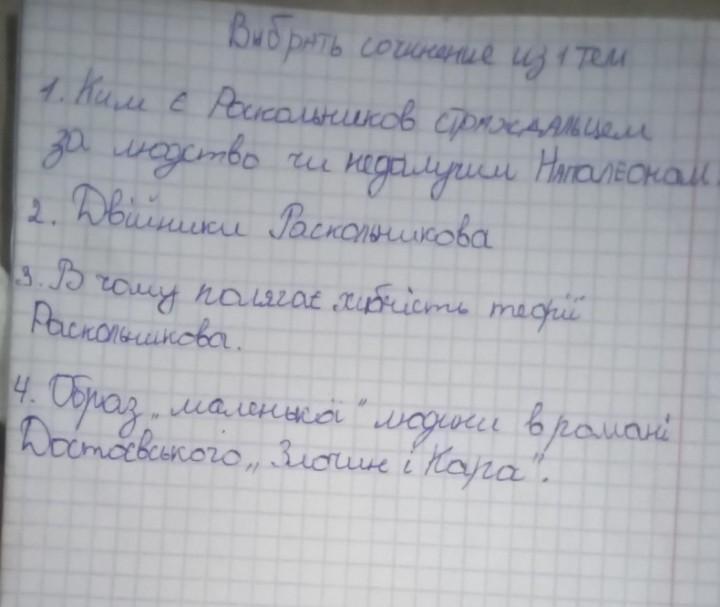 Выбрать сочинение из 1 тем
1. Ким є Раскольников страждальцем
за людство чи недалугим Наполеоном.
2. Двійники Раскольникова
3. В чому полягає хибність теорії
Раскольникова.
4. Образ „маленької" людини в романі
Достоєвського „Злочин і Кара".